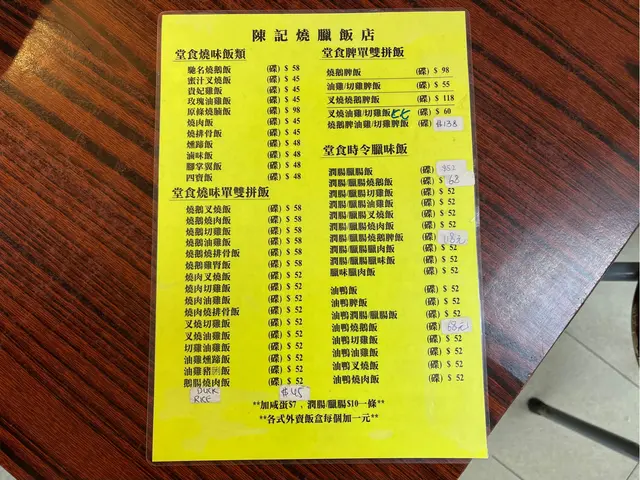 陳記燒臘飯店
堂食燒味飯類
馳名燒鵝飯 (碟) $ 58
蜜汁叉燒飯 (碟) $ 45
貴妃雞飯 (碟) $ 45
玫瑰油雞飯 (碟) $ 45
原條燒腩飯 (碟) $ 98
燒肉飯 (碟) $ 45
燒排骨飯 (碟) $ 45
燻蹄飯 (碟) $ 48
滷味飯 (碟) $ 48
腳掌翼飯 (碟) $ 48
四寶飯 (碟) $ 48
堂食燒味單雙拼飯
燒鵝叉燒飯 (碟) $ 58
燒鵝燒肉飯 (碟) $ 58
燒鵝切雞飯 (碟) $ 58
燒鵝油雞飯 (碟) $ 58
燒鵝燒排骨飯 (碟) $ 58
燒鵝雞腎飯 (碟) $ 58
燒肉叉燒飯 (碟) $ 52
燒肉切雞飯 (碟) $ 52
燒肉油雞飯 (碟) $ 52
燒肉燒排骨飯 (碟) $ 52
叉燒切雞飯 (碟) $ 52
叉燒油雞飯 (碟) $ 52
切雞油雞飯 (碟) $ 52
油雞燻蹄飯 (碟) $ 52
油雞豬飯 (碟) $ 52
鵝腸燒肉飯 (碟) $ 52
DUCK RICE $45
堂食脾單雙拼飯
燒鵝脾飯 (碟) $ 98
油雞/切雞脾飯 (碟) $ 55
叉燒燒鵝脾飯 (碟) $ 118
叉燒油雞/切雞飯 (碟) $ 60
燒鵝脾油雞/切雞脾飯 (碟) $138
堂食時令臘味飯
潤腸臘腸飯 (碟) $52
潤腸/臘腸燒鵝飯 (碟) $ 68
潤腸/臘腸切雞飯 (碟) $ 52
潤腸/臘腸油雞飯 (碟) $ 52
潤腸/臘腸叉燒飯 (碟) $ 52
潤腸/臘腸燒肉飯 (碟) $ 52
潤腸/臘腸燒鵝脾飯 (碟) 118元
潤腸/臘腸臘肉飯 (碟) $ 52
潤腸/臘腸臘味飯 (碟) $ 52
臘味臘肉飯 (碟) $ 52
油鴨飯 (碟) $ 52
油鴨脾飯 (碟) $ 52
油鴨潤腸/臘腸飯 (碟) $ 52
油鴨燒鵝飯 (碟) 68元
油鴨切雞飯 (碟) $ 52
油鴨油雞飯 (碟) $ 52
油鴨叉燒飯 (碟) $ 52
油鴨燒肉飯 (碟) $ 52
**加咸蛋$7，潤腸/臘腸$10一條**
**各式外賣飯盒每個加一元**